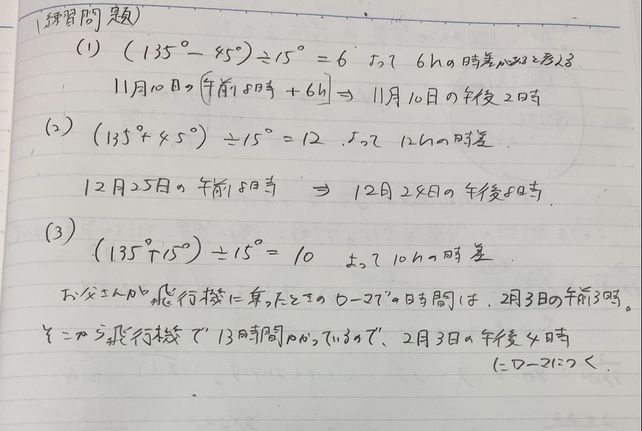 (練習問題)
(1) (135°-45°)÷15°=6 よって 6hの時差があると考える
11月10日の[午前8時+6h]⇒11月10日の午後2時
(2) (135°+45°)÷15°=12 よって 12hの時差
12月25日の午前8時 ⇒ 12月24日の午後8時.
(3)
(135°+15°)÷15°=10 よって 10hの時差
お父さんが飛行機に乗ったときのローマでの時間は、2月3日の午前3時。
そこから飛行機で13時間かかっているので、2月3日の午後4時
にローマにつく.